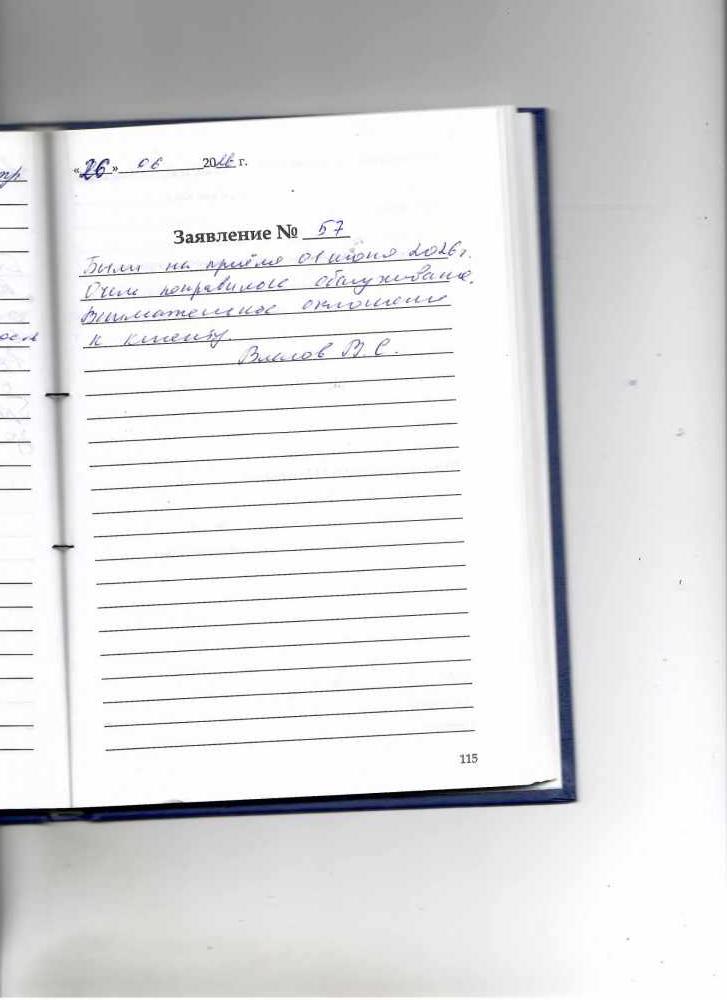 «26» 06 2026 г.
Заявление № 57
Были на приёме 01 июня 2026 г.
Очень понравилось обслуживание.
Внимательное отношение
к клиенту.
В. С.
115